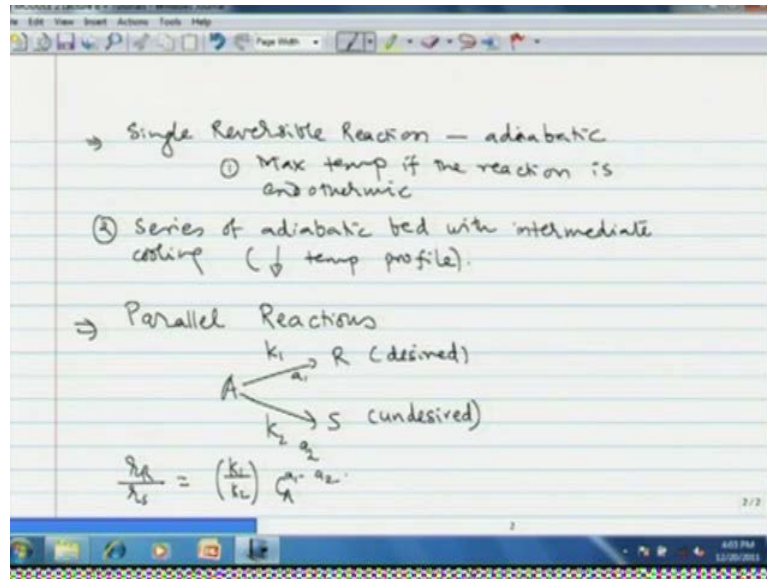 MODULE 2 Lecture 6
Edit View Insert Actions Tools Help
Page Width
⇒ Single Reversible Reaction — adiabatic
① Max temp if the reaction is
endothermic
② Series of adiabatic bed with intermediate
cooling (↓ temp profile).
⇒ Parallel Reactions
k₁ R (desired)
a₁
A
k₂ S (undesired)
a₂
r_R/r_S = (k₁/k₂) C_A^(a₁-a₂)
2/2
2
4:03 PM
12/20/2011